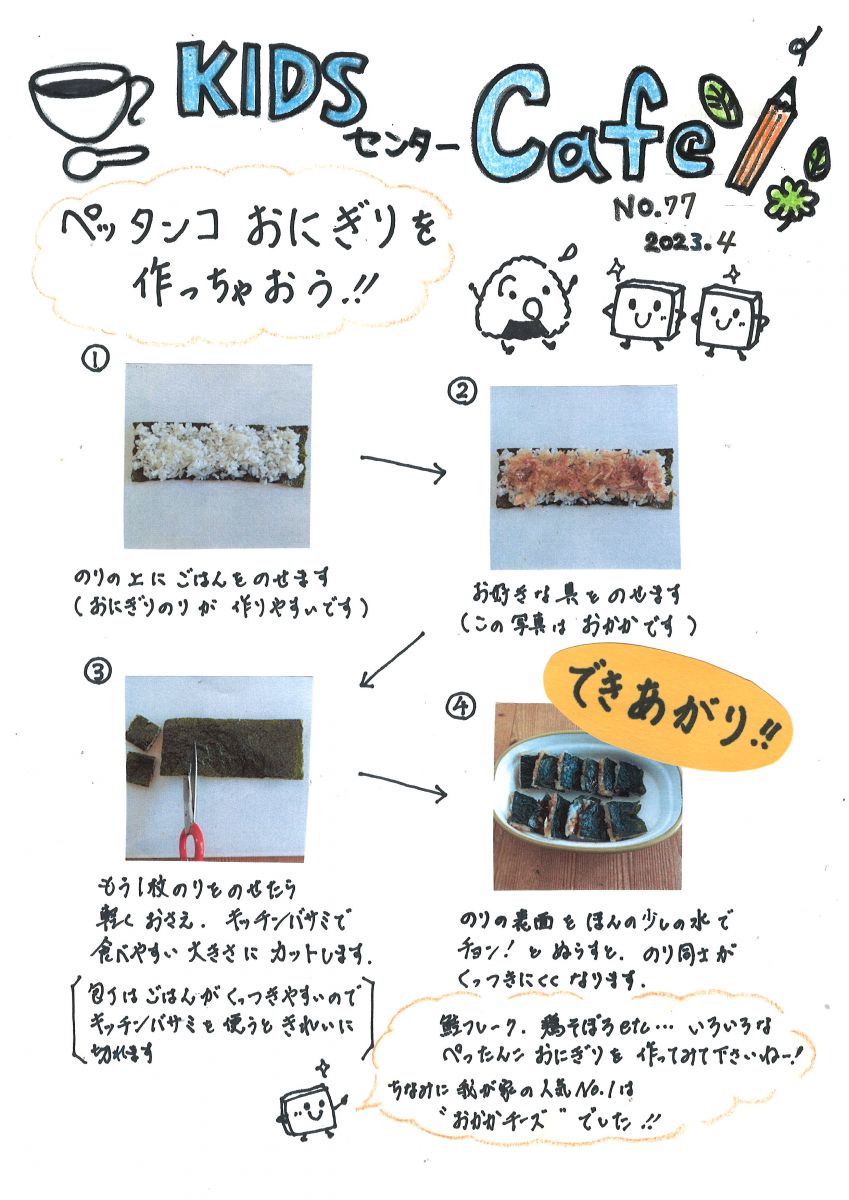 KIDS
センター Cafe
NO.77
2023.4
ペッタンコ おにぎりを
作っちゃおう!!
①
のりの上に ごはんをのせます
(おにぎりのりが 作りやすいです)
②
お好きな具をのせます
(この写真は おかかです)
③
もう1枚のりをのせたら
軽く おさえ、キッチンバサミで
食べやすい大きさに カットします.
[包丁はごはんがくっつきやすいので
キッチンバサミを使うときれいに
切れます]
④
できあがり!!
のりの表面をほんの少しの水で
チョン!とぬらすと、のり同士が
くっつきにくくなります.
鮭フレーク、鶏そぼろetc…いろいろな
ぺったんこおにぎりを作ってみて下さいねー!
ちなみに 我が家の人気No.1は
"おかかチーズ"でした!!